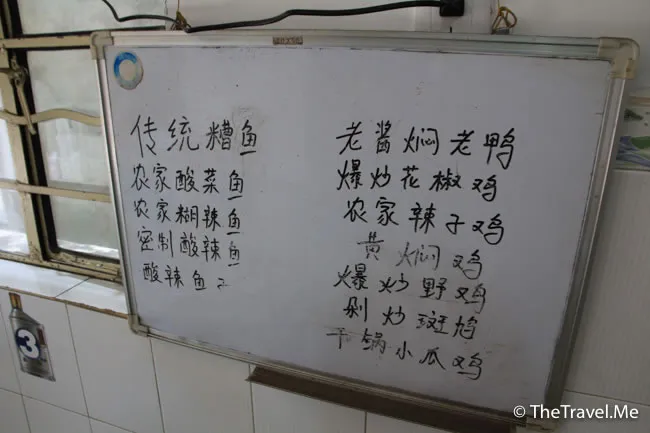 传统糟鱼
农家酸菜鱼
农家糊辣鱼
密制酸辣鱼
酸辣鱼子
老酱焖老鸭
爆炒花椒鸡
农家辣子鸡
黄焖鸡
爆炒野鸡
剁炒斑鸠
干锅小瓜鸡
3
© TheTravel.Me